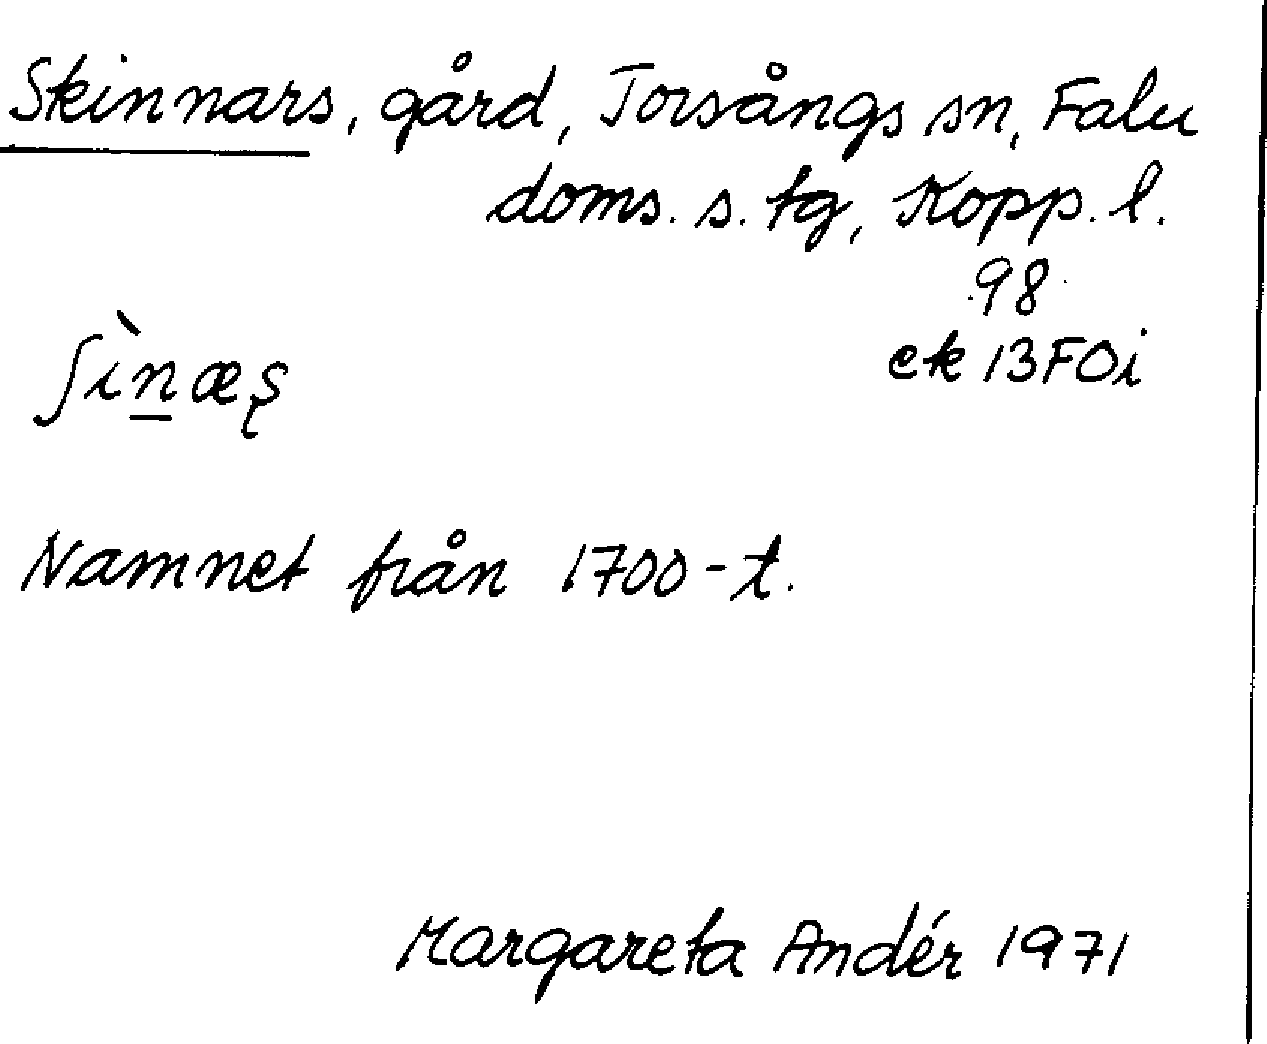 Skinnars, gård, Torsångs sn, Falu
doms. s. tg, Kopp. l.
98
ek 13F0i
ʃìn̲æʂ
Namnet från 1700-t.
Margareta Andér 1971